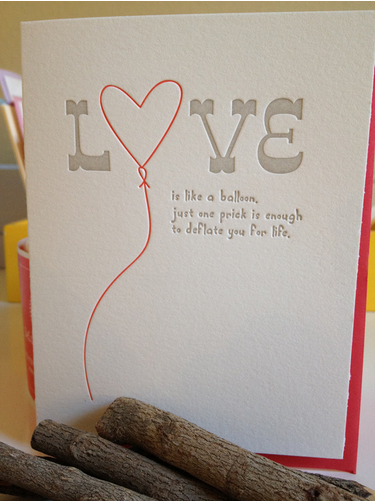 LOVE
is like a balloon,
just one prick is enough
to deflate you for life.